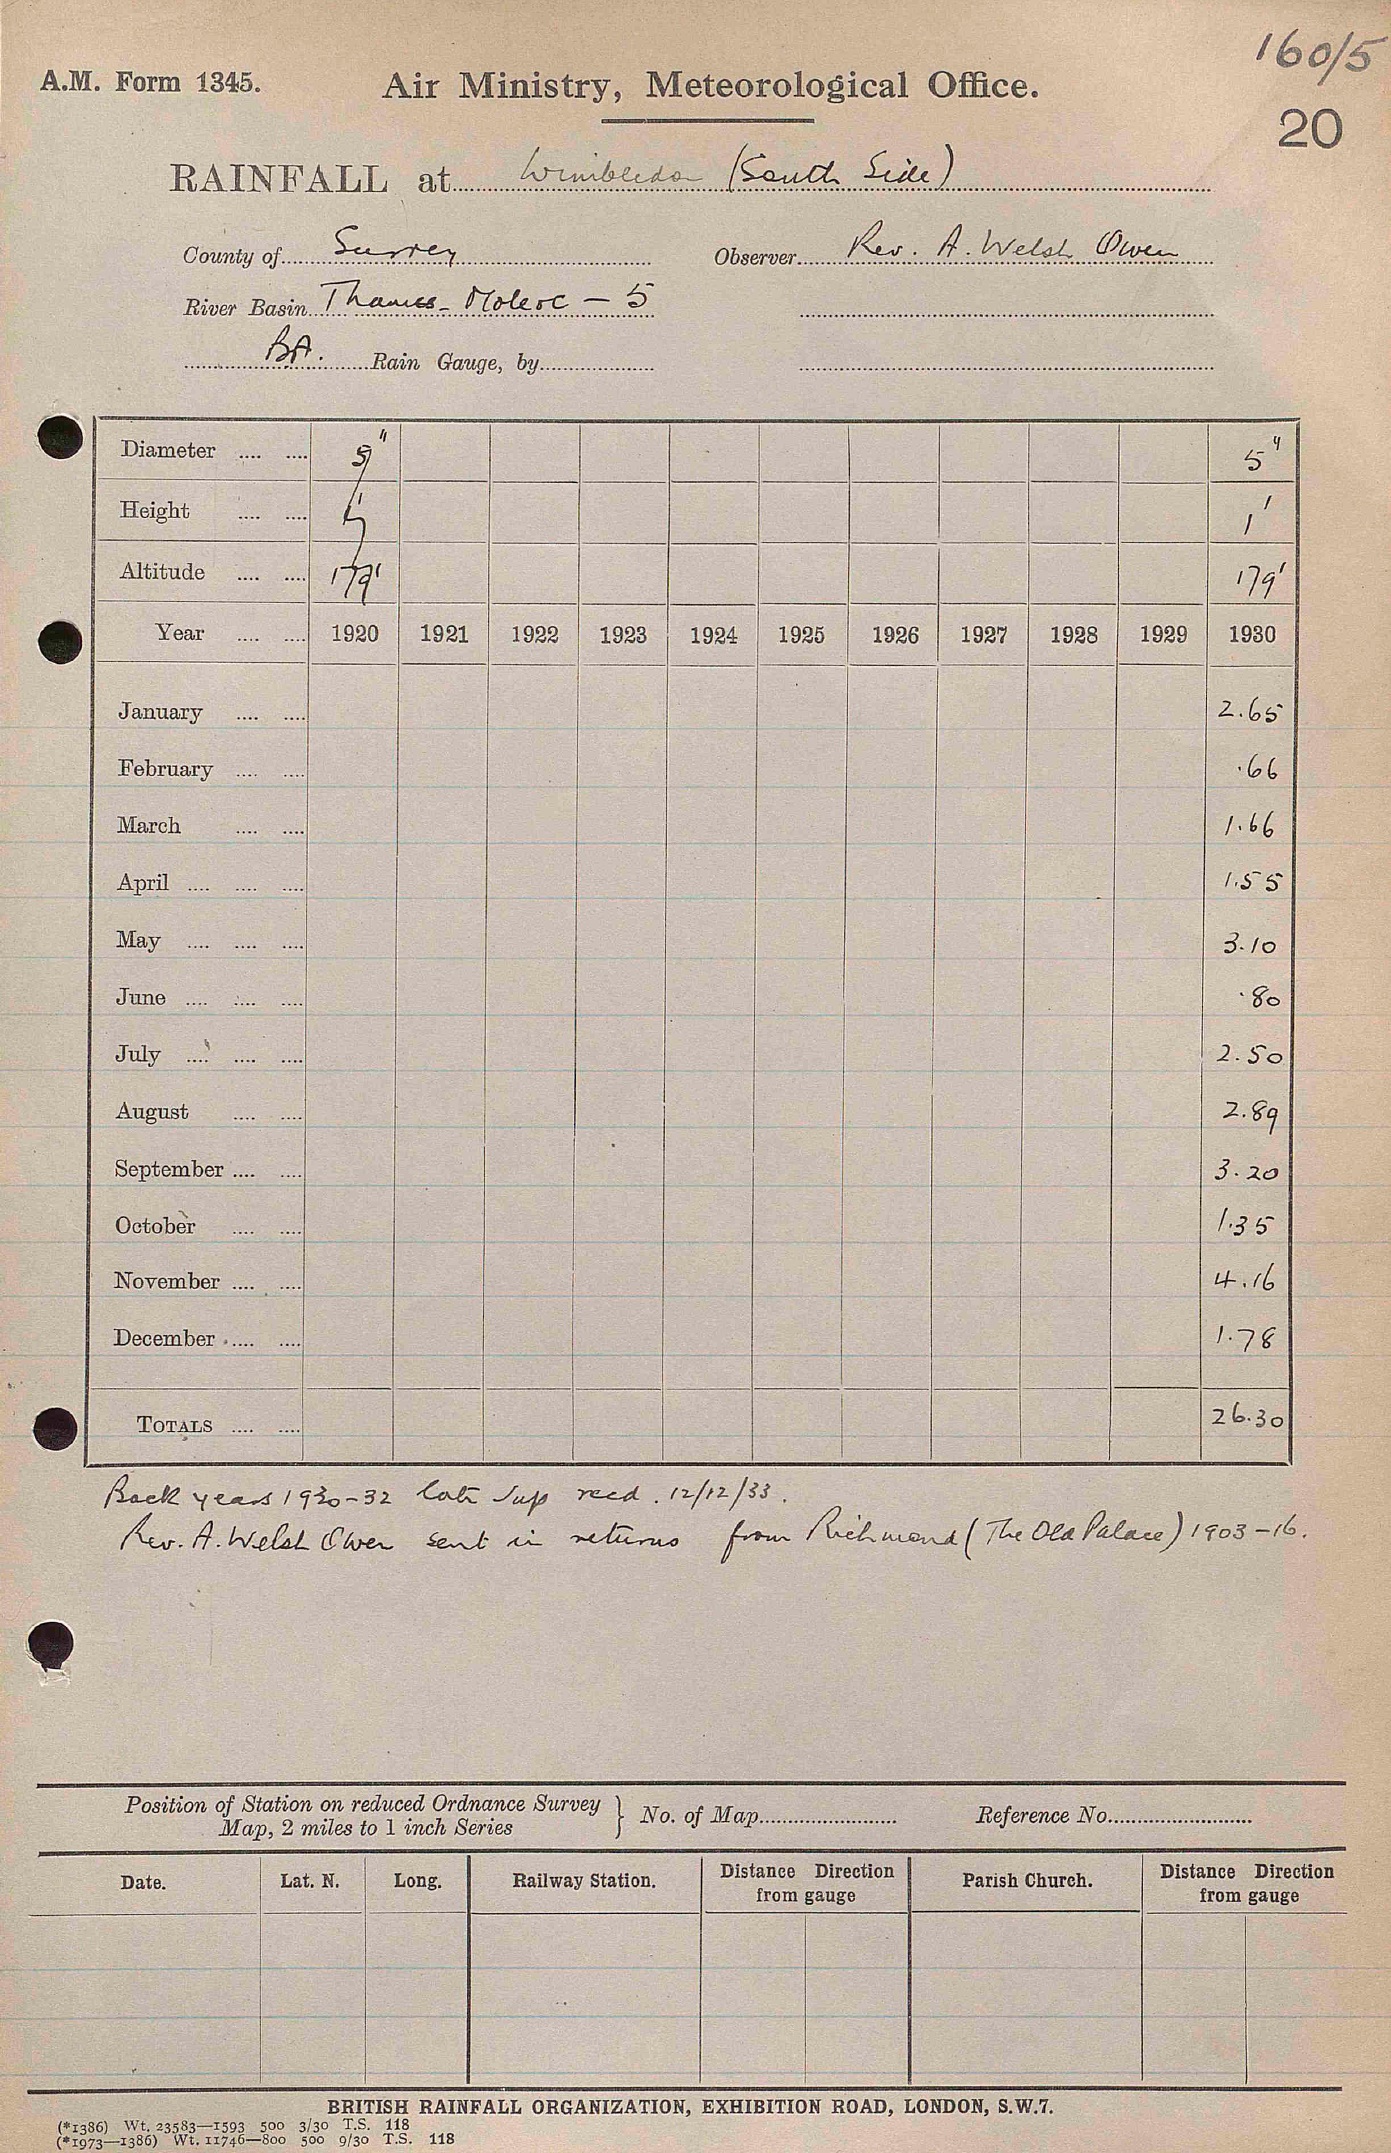 160/5
A.M. Form 1345. Air Ministry, Meteorological Office.
20
RAINFALL at Wimbledon (South Side)
County of Surrey Observer Rev. A. Welsh Owen
River Basin Thames - Mole &c - 5
BA. Rain Gauge, by
Diameter .... .... 5" 5"
Height .... .... 1' 1'
Altitude .... .... 179' 179'
Year .... .... 1920 1921 1922 1923 1924 1925 1926 1927 1928 1929 1930
January .... .... 2.65
February .... .... .66
March .... .... 1.66
April .... .... .... 1.55
May .... .... .... 3.10
June .... .... .... .80
July .... .... .... 2.50
August .... .... 2.89
September .... .... 3.20
October .... .... 1.35
November .... .... 4.16
December .... .... 1.78
TOTALS .... .... 26.30
Back years 1930-32 late Sup recd. 12/12/33.
Rev. A. Welsh Owen sent in returns from Richmond (The Old Palace) 1903-16.
Position of Station on reduced Ordnance Survey
Map, 2 miles to 1 inch Series } No. of Map Reference No.
Date. Lat. N. Long. Railway Station. Distance Direction from gauge Parish Church. Distance Direction from gauge
BRITISH RAINFALL ORGANIZATION, EXHIBITION ROAD, LONDON, S.W.7.
(*1386) Wt. 23583—1593 500 3/30 T.S. 118
(*1973—1386) Wt. 11746—800 500 9/30 T.S. 118